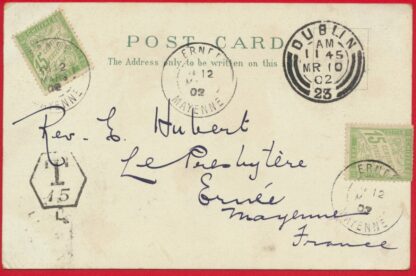 POST CARD
The Address only to be written on this
DUBLIN
AM
11 45
MR 10
02
23
ERNÉE
12
02
MAYENNE
ERNÉE
12
02
MAYENNE
15
ERNÉE
12
02
MAYENNE
Rev. E. Hubert
Le Presbytère
Ernée
Mayenne
France
T
15